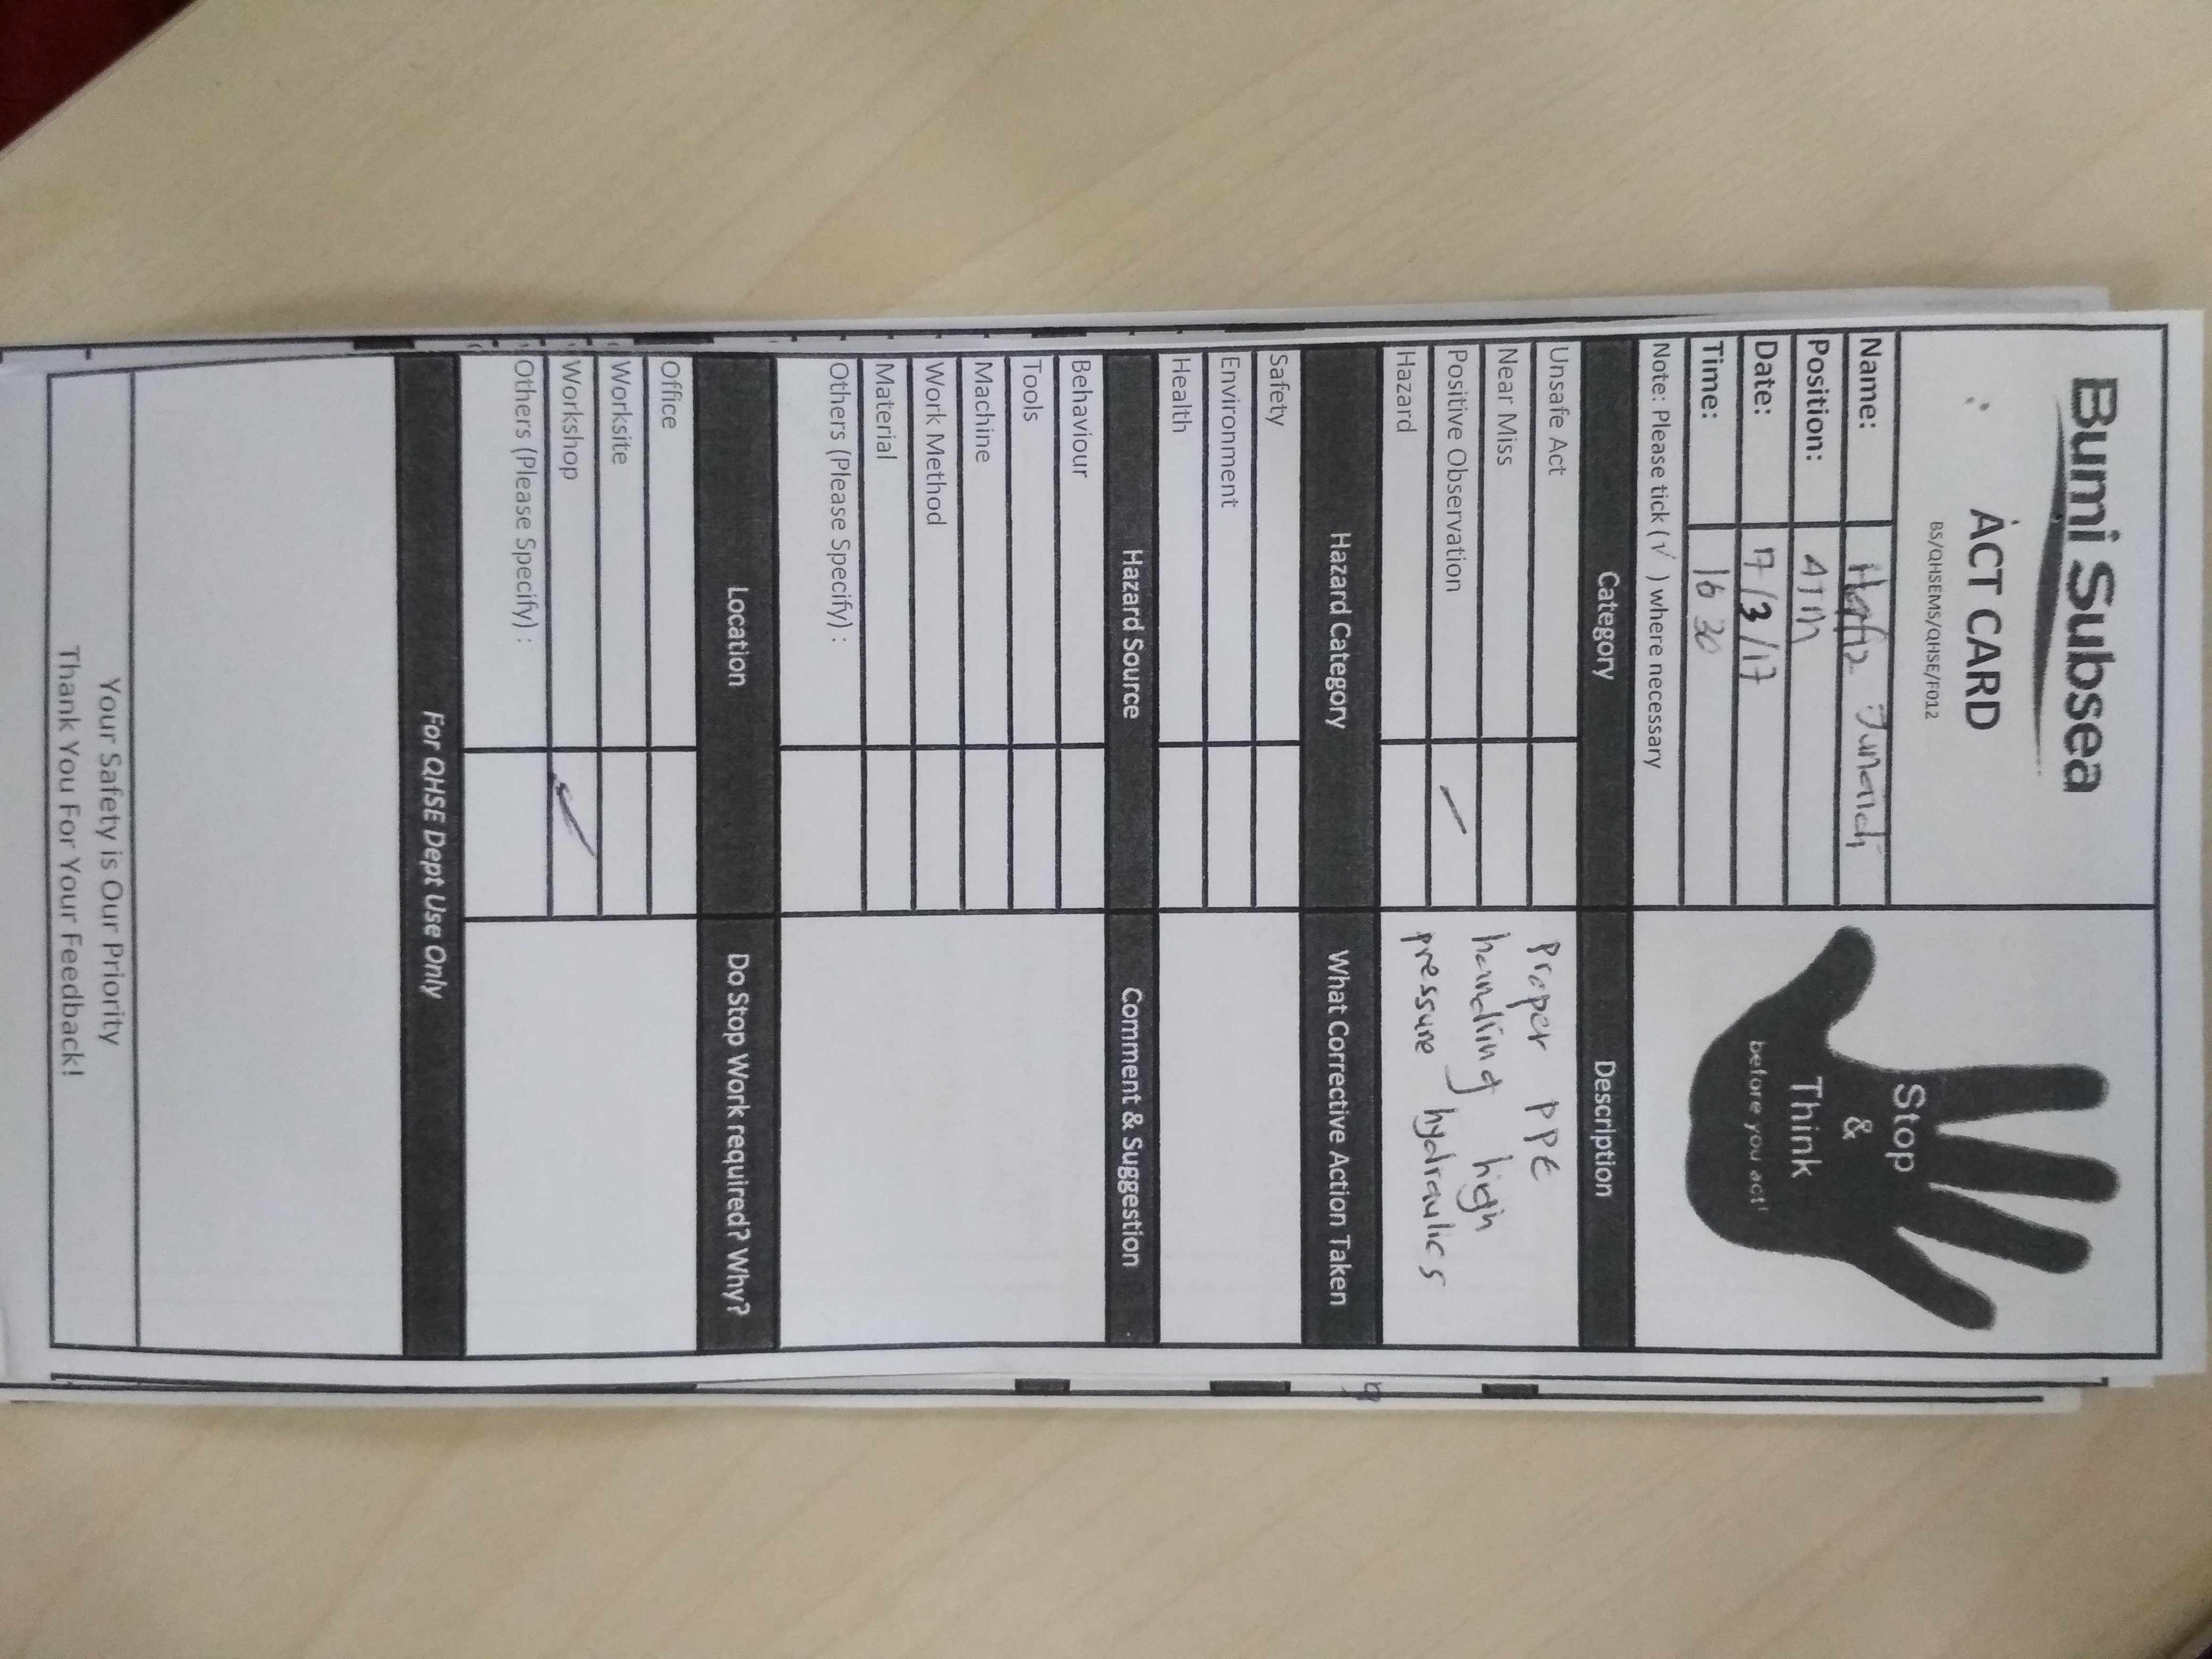 Bumi Subsea
ACT CARD
BS/QHSEMS/QHSE/F012
Stop
&
Think
before you act!
Name: Hafiz Junaidi
Position: ATM
Date: 17/3/17
Time: 16 30
Note: Please tick (√ ) where necessary
Category Description
Unsafe Act
Near Miss
Positive Observation
Hazard
Proper PPE
handling high
pressure hydraulics
Hazard Category What Corrective Action Taken
Safety
Environment
Health
Hazard Source Comment & Suggestion
Behaviour
Tools
Machine
Work Method
Material
Others (Please Specify) :
Location Do Stop Work required? Why?
Office
Worksite
Workshop ✓
Others (Please Specify) :
For QHSE Dept Use Only
Your Safety is Our Priority
Thank You For Your Feedback!